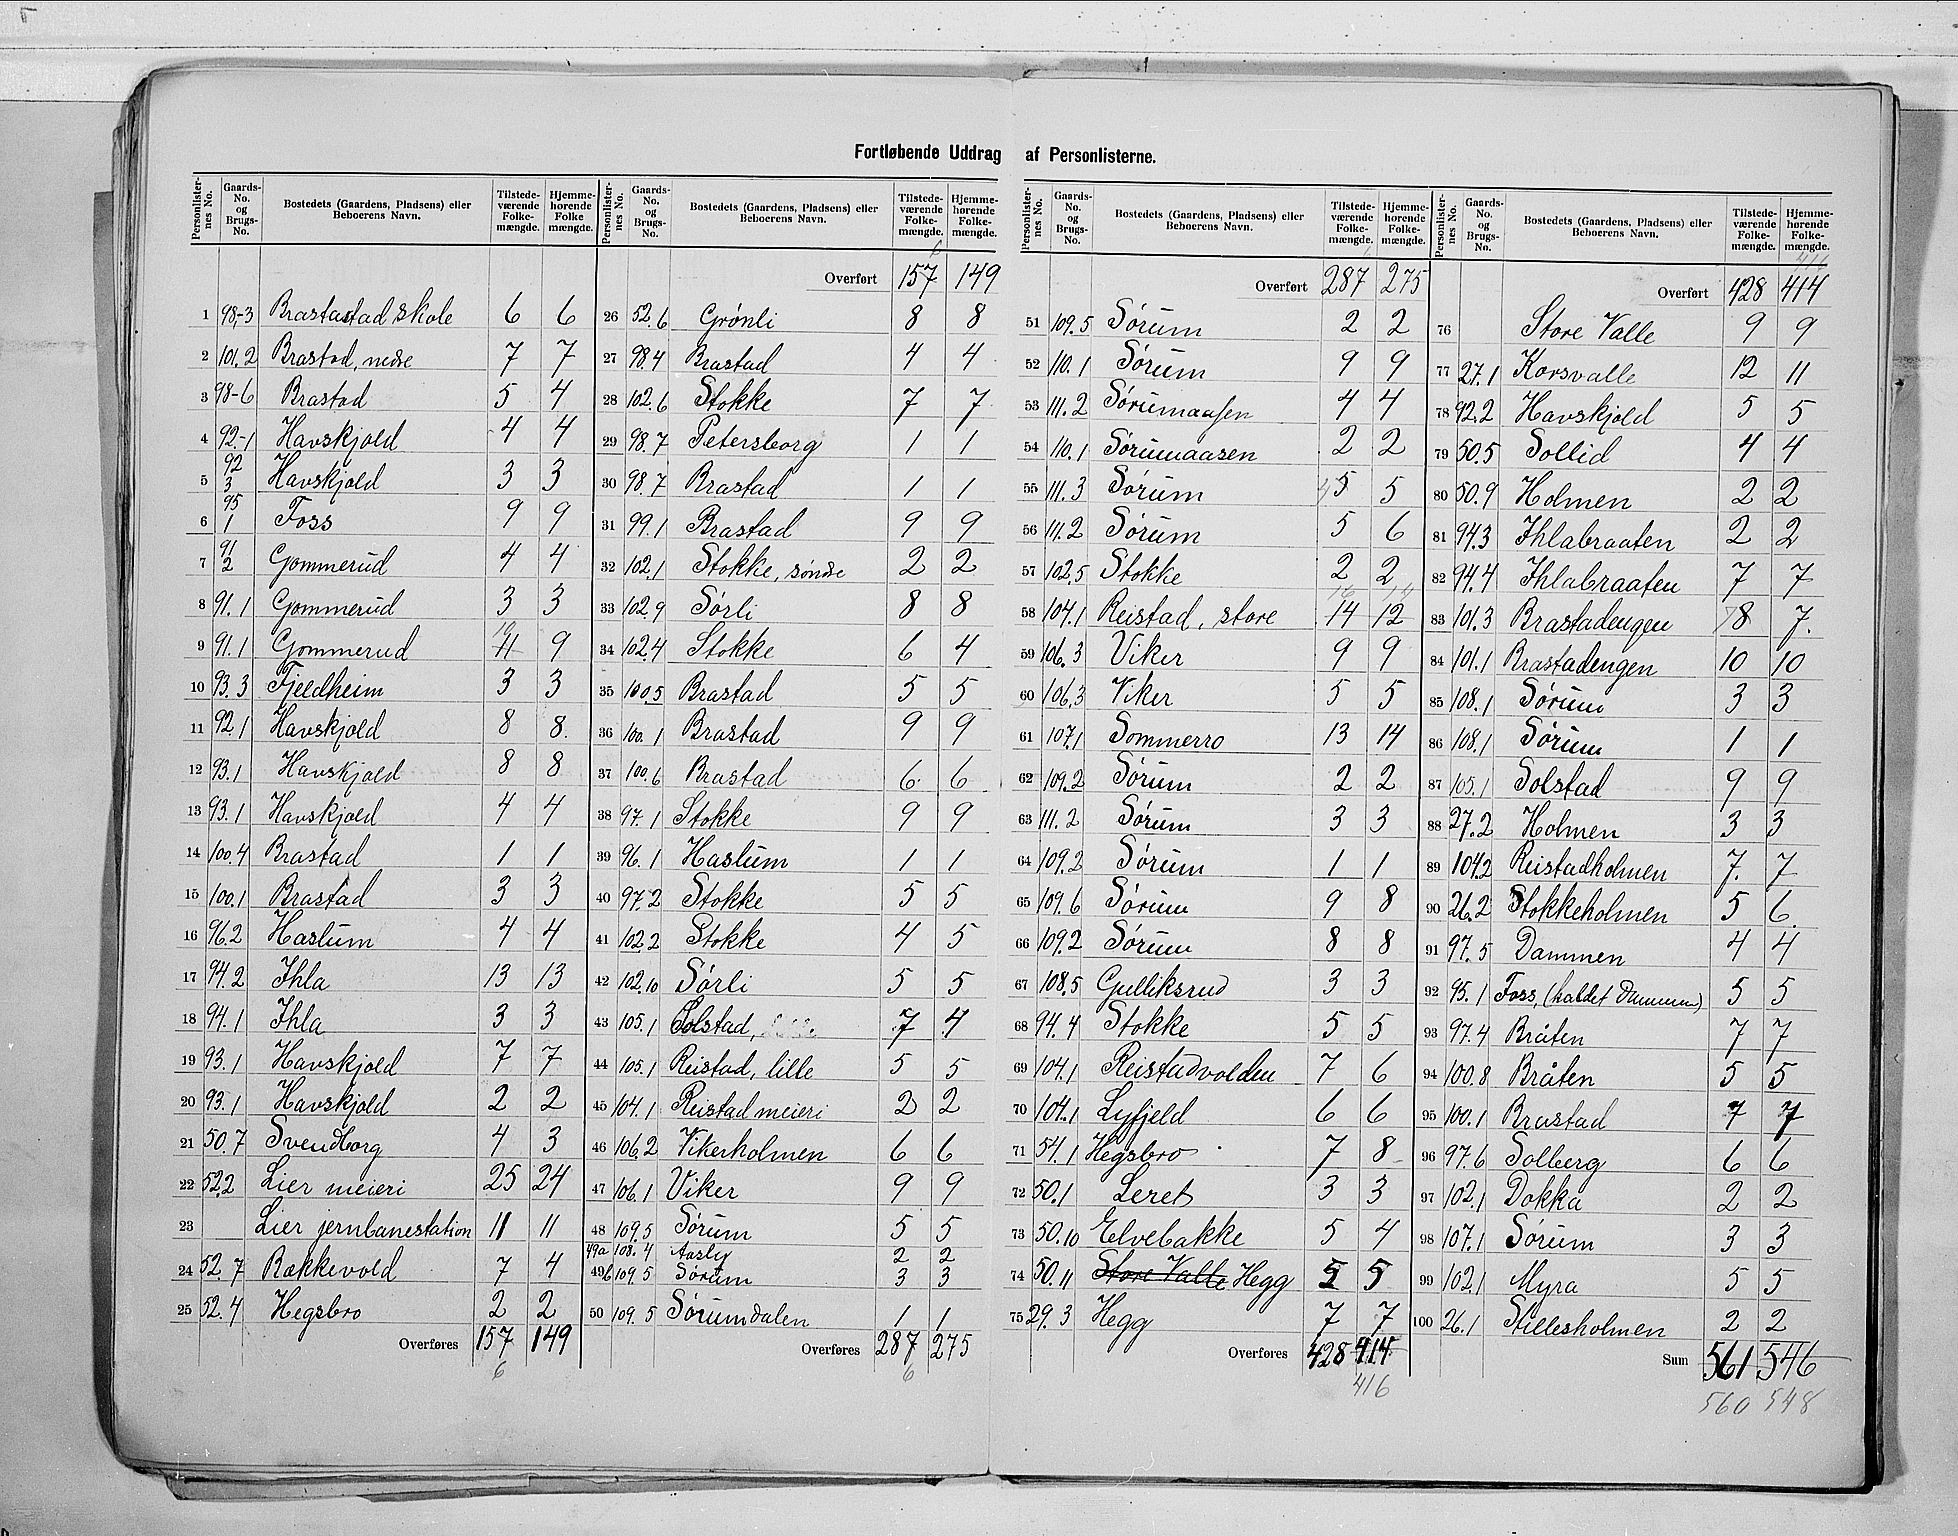 Fortløbende Uddrag af Personlisterne.
Personlisternes No. Gaards-No. og Brugs-No. Bostedets (Gaardens, Pladsens) eller Beboerens Navn. Tilstedeværende Folkemængde. Hjemmehørende Folkemængde.
1 98,-3 Brastastad skole 6 6
2 101.2 Brastad, nedre 7 7
3 98-6 Brastad 5 4
4 92-1 Havskjold 4 4
5 92 3 Havskjold 3 3
6 95 1 Foss 9 9
7 91 2 Gommerud 4 4
8 91.1 Gommerud 3 3
9 91.1 Gommerud 11 9
10 93.3 Fjeldheim 3 3
11 92.1 Havskjold 8 8.
12 93.1 Havskjold 8 8
13 93.1 Havskjold 4 4
14 100.4 Brastad 1 1
15 100.1 Brastad 3 3
16 96.2 Haslum 4 4
17 94.2 Ihla 13 13
18 94.1 Ihla 3 3
19 93.1 Havskjold 7 7
20 93.1 Havskjold 2 2
21 50.7 Svendborg 4 3
22 52.2 Lier meieri 25 24
23 Lier jernbanestation 11 11
24 52.7 Bakkevold 7 4
25 52.4 Hegsbro 2 2
Overføres 157 149
6
Personlisternes No. Gaards-No. og Brugs-No. Bostedets (Gaardens, Pladsens) eller Beboerens Navn. Tilstedeværende Folkemængde. Hjemmehørende Folkemængde.
6
Overført 157 149
26 52.6 Grønli 8 8
27 98.4 Brastad 4 4
28 102.6 Stokke 7 7
29 98.7 Petersborg 1 1
30 98.7 Brastad 1 1
31 99.1 Brastad 9 9
32 102.1 Stokke, søndre 2 2
33 102.9 Sørli 8 8
34 102.4 Stokke 6 4
35 100.5 Brastad 5 5
36 100.1 Brastad 9 9
37 100.6 Brastad 6 6
38 97.1 Stokke 9 9
39 96.1 Haslum 1 1
40 97.2 Stokke 5 5
41 102.2 Stokke 4 5
42 102.10 Sørli 5 5
43 105.1 Solstad, 7 4
44 105.1 Reistad, lille 5 5
45 104.1 Reistad meieri 2 2
46 106.2 Vikerholmen 6 6
47 106.1 Viker 9 9
48 109.5 Sørum 5 5
49a 108.4 Aasly 2 2
49b 109.5 Sørum 3 3
50 109.5 Sørumdalen 1 1
Overføres 287 275
6
Personlisternes No. Gaards-No. og Brugs-No. Bostedets (Gaardens, Pladsens) eller Beboerens Navn. Tilstedeværende Folkemængde. Hjemmehørende Folkemængde.
Overført 287 275
51 109.5 Sørum 2 2
52 110.1 Sørum 9 9
53 111.2 Sørumaasen 4 4
54 110.1 Sørumaasen 2 2
55 111.3 Sørum 5 5
56 111.2 Sørum 5 6
57 102.5 Stokke 2 2
58 104.1 Reistad, store 14 12
59 106.3 Viker 9 9
60 106.3 Viker 5 5
61 107.1 Sommerro 13 14
62 109.2 Sørum 2 2
63 111.2 Sørum 3 3
64 109.2 Sørum 1 1
65 109.6 Sørum 9 8
66 109.2 Sørum 8 8
67 108.5 Gulliksrud 3 3
68 94.4 Stokke 5 5
69 104.1 Reistadvolden 7 6
70 104.1 Lyfjeld 6 6
71 54.1 Hegsbro 7 8
72 50.1 Leret 3 3
73 50.10 Elvebakke 5 4
74 50.11 Store Valle Hegg 5 5
75 29.3 Hegg 7 7
Overføres 428 414
416
Personlisternes No. Gaards-No. og Brugs-No. Bostedets (Gaardens, Pladsens) eller Beboerens Navn. Tilstedeværende Folkemængde. Hjemmehørende Folkemængde.
416
Overført 428 414
76 Store Valle 9 9
77 27.1 Korsvalle 12 11
78 92.2 Havskjold 5 5
79 50.5 Sollid 4 4
80 50.9 Holmen 2 2
81 94.3 Ihlabraaten 2 2
82 94.4 Ihlabraaten 7 7
83 101.3 Brastadengen 8 7.
84 101.1 Brastadengen 10 10
85 108.1 Sørum 3 3
86 108.1 Sørum 1 1
87 105.1 Solstad 9 9
88 27.2 Holmen 3 3
89 104.2 Reistadholmen 7. 7
90 26.2 Stokkeholmen 5 6
91 97.5 Dammen 4 4
92 95.1 Foss, (kaldet Dammen) 5 5
93 97.4 Bråten 7 7
94 100.8 Bråten 5 5
95 100.1 Brastad 7 7
96 97.6 Solberg 6 6
97 102.1 Dokka 2 2
98 107.1 Sørum 3 3
99 102.1 Myra 5 5
100 26.1 Stillesholmen 2 2
Sum 561 546
560 548